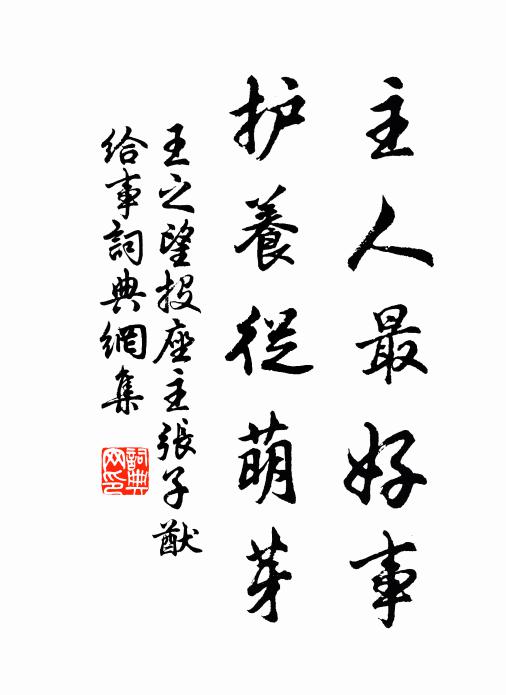 主人最好事
护養從萌芽
王之望投座主張子猷
給事詞典網集
詞典网印